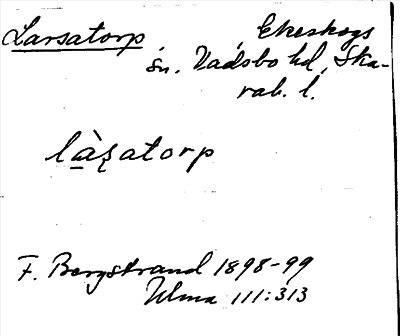 Larsatorp, Ekeskogs
sn. Vadsbo hd, Ska-
rab. l.
làs̨atorp
F. Bergstrand 1898-99
Ulma 111:313